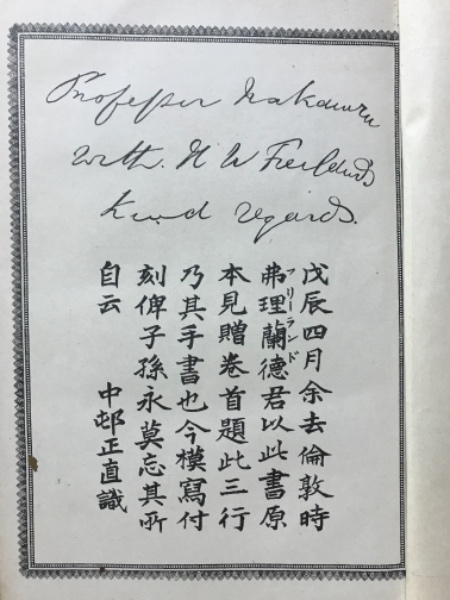 Professor Nakamura
with. H W Freeland's
kind regards.
戊辰四月余去倫敦時
弗理蘭德君以此書原
フリーランド
本見贈卷首題此三行
乃其手書也今模寫付
刻俾子孫永莫忘其所
自云 中邨正直識